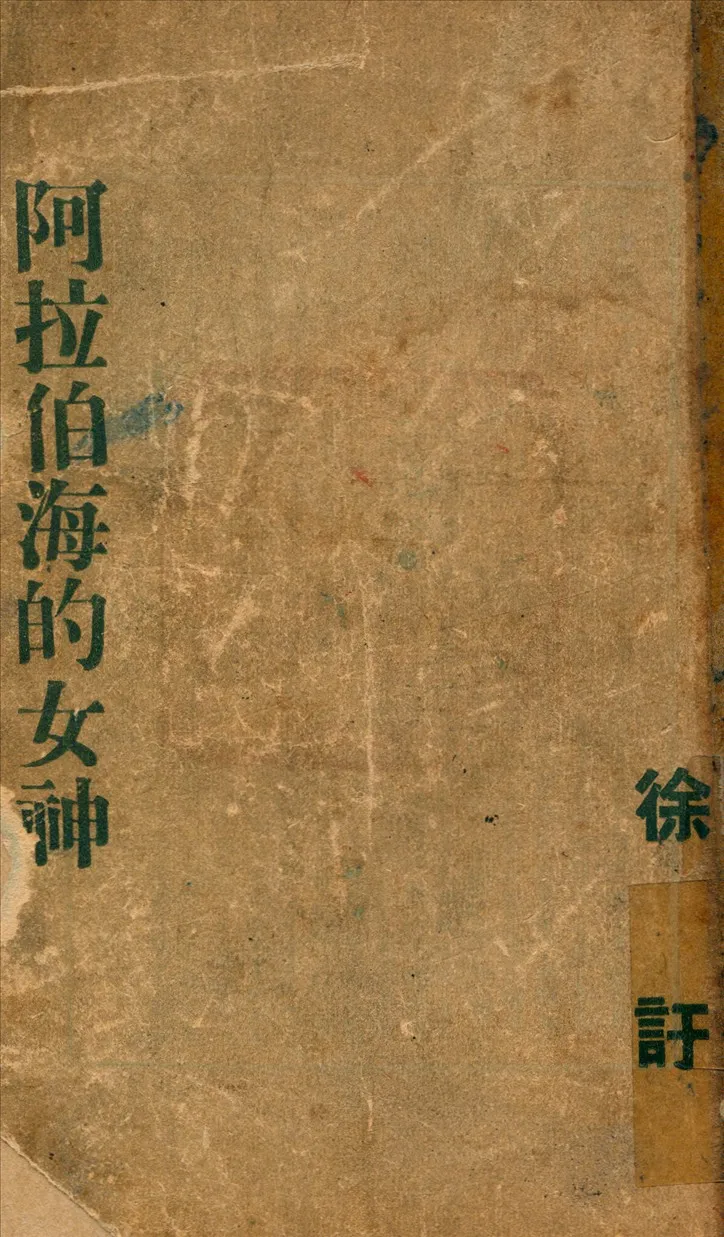 阿拉伯海的女神
徐訏